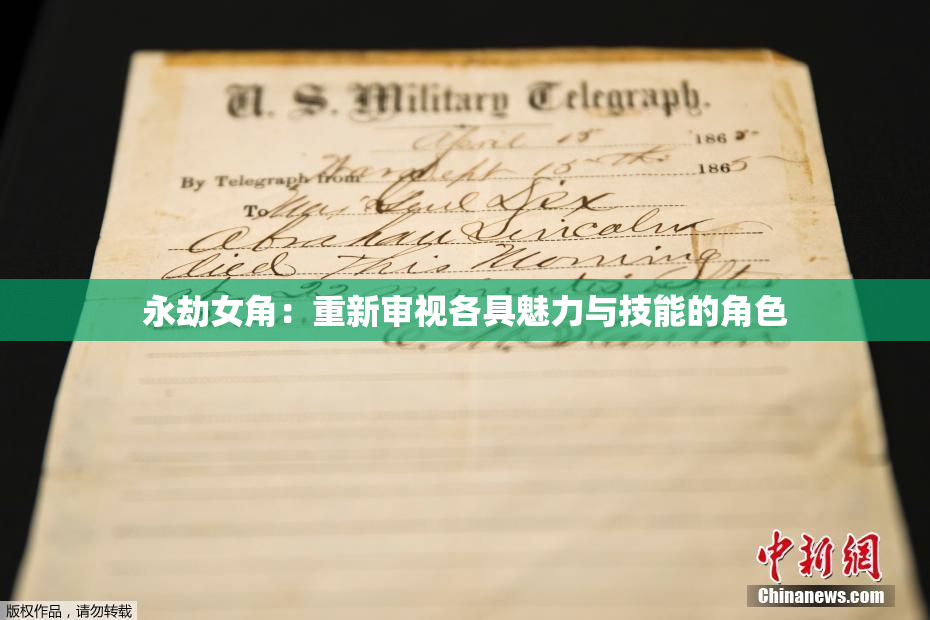 U. S. Military Telegraph.
April 15 1865
By Telegraph from War Dept 15th 1865
To Maj Genl Dix
Abraham Lincoln
died This Morning
at 22 minutes after
永劫女角：重新审视各具魅力与技能的角色
E. M. Stanton
中新网
Chinanews.com
版权作品，请勿转载